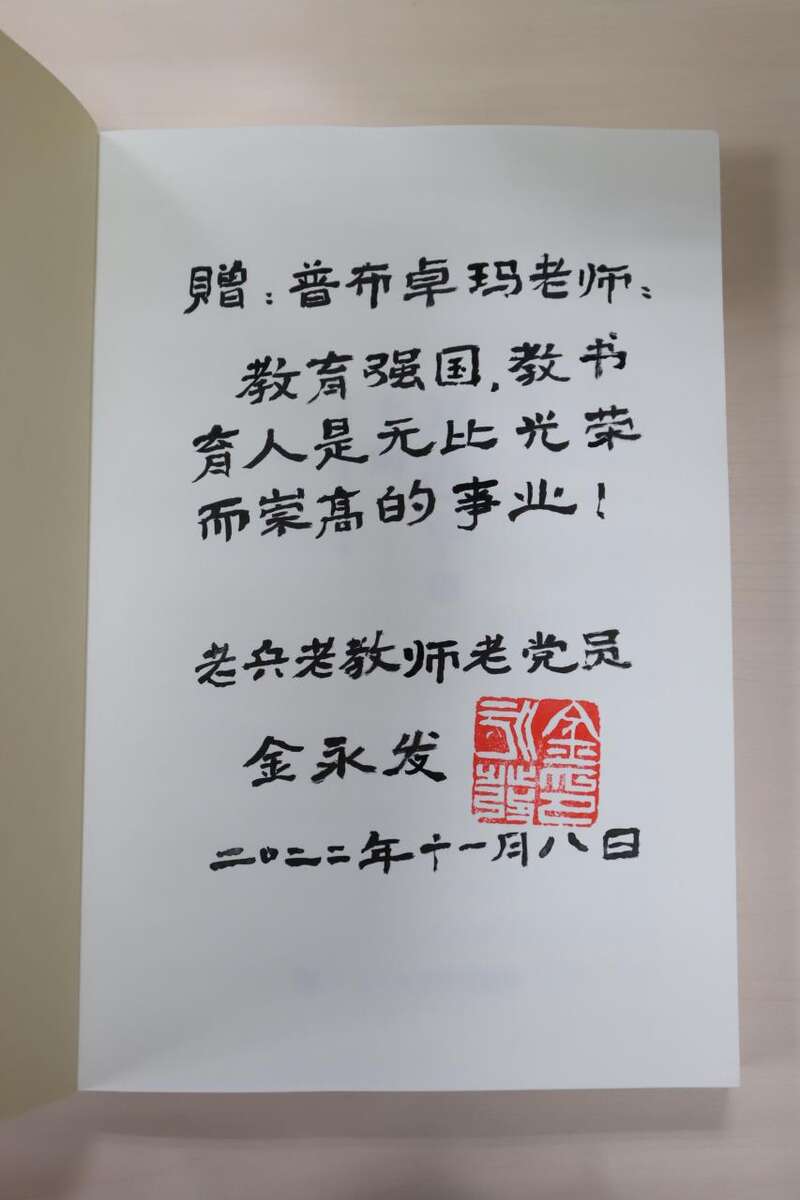 贈:普布卓玛老师:
教育强国,教书
育人是无比光荣
而崇高的事业!
老兵老教师老党员
金永发
二〇二二年十一月八日